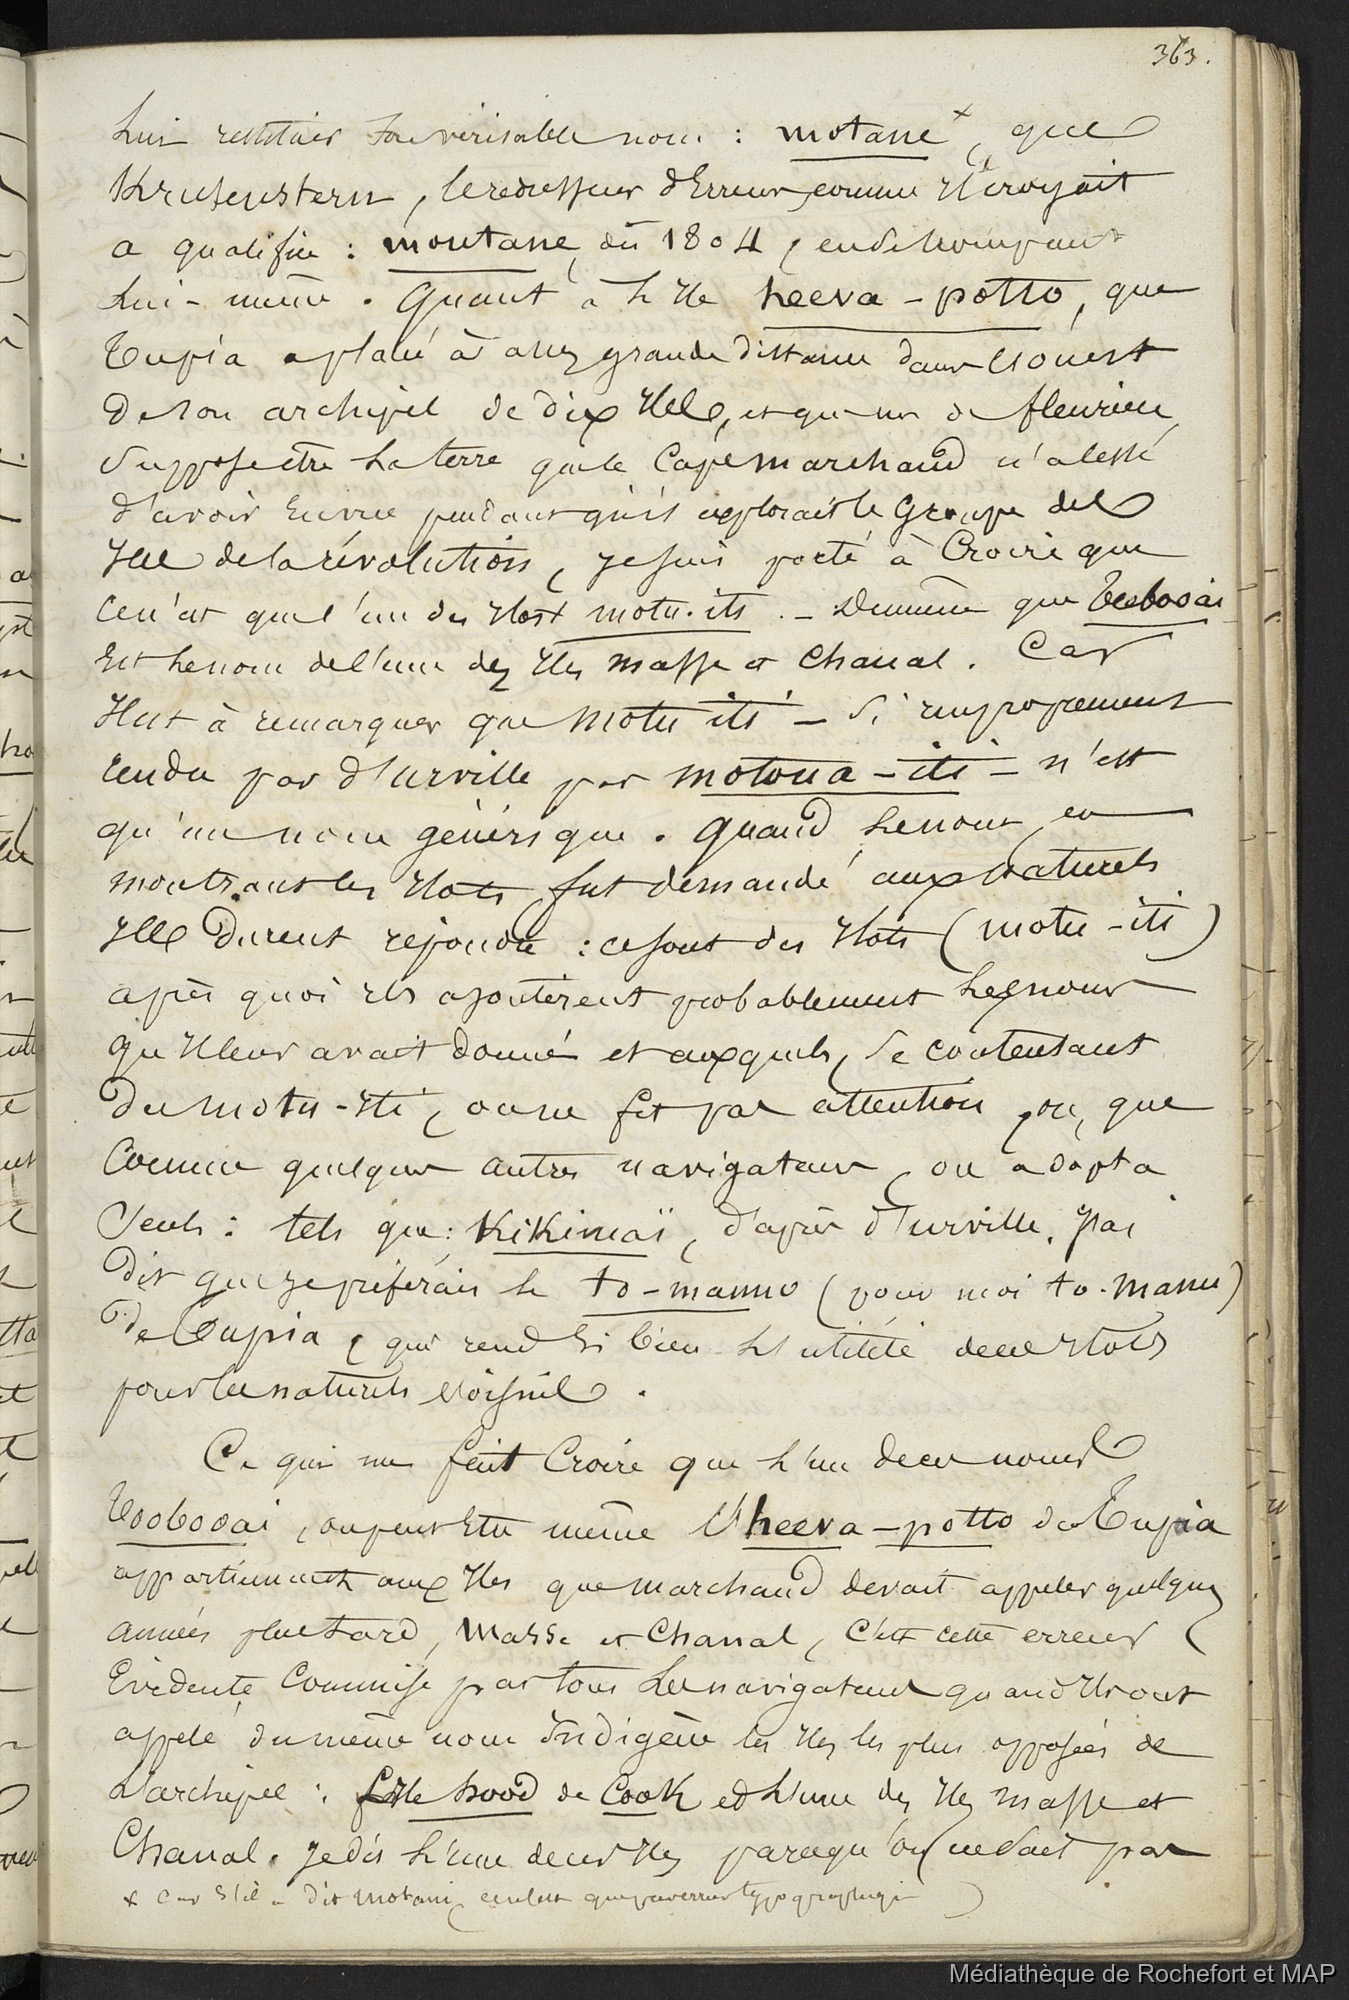 363.
lui restituer son véritable nom : motane x, que
Krusenstern, le redresseur d'Erreurs, comme il croyait
a qualifié : montane, dès 1804, en se trompant
lui-même. Quant à l'île heeva-potto, que
Tupia a placé à assez grande distance dans l'ouest
de son archipel de dix îles, et que mr de fleurieu
suppose être la terre que le Cape marchand n'a cessé
d'avoir en vue pendant qu'il explorait le Groupe des
îles de la révolution, je suis porté à Croire que
ce n'est que l'un des îlots motu-iti. - De même que Teebooai
est le nom de l'une des îles masse et Chanal. Car
il est à remarquer que motu-iti - si improprement
rendu par d'urville par motoua-iti - n'est
qu'un nom générique. Quand le nom, en
montrant les îlots, fut demandé aux naturels
ils durent répondre : ce sont des îlots (motu-iti)
après quoi ils ajoutèrent probablement les noms
qu'il leur avait donné et auxquels, se contentant
du motu-iti, on ne fit pas attention, ou, que
Comme quelques autres navigateurs, on adopta
seuls : tels que : KiKimaï, d'après d'urville. J'ai
dit que je préférais le to-manno (pour moi to-manu)
de Tupia, qui rend si bien l'utilité de ces îlots
pour les naturels voisins.
Ce qui me fait Croire que l'un de ces noms
Toobooai, ou peut être même l'heeva-potto de Tupia
appartiennent aux îles que marchand devait appeler quelques
années plus tard, Masse et Chanal, c'est cette erreur
Evidente Commise par tous les navigateurs quand ils ont
appelé du même nom Indigène les îles les plus opposées de
l'archipel : l'île hood de CooK et l'une des îles masse et
Chanal. Je dis l'une de ces îles parcequ'on ne sait pas
x Car s'il a dit motani, ce n'est que par erreur typographique
Médiathèque de Rochefort et MAP